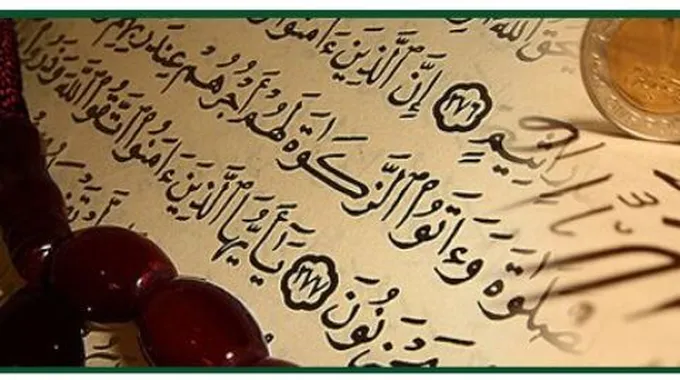 يَمْحَقُ اللَّهُ
أَثِيمٍ ٢٧٦ إِنَّ ٱلَّذِينَ ءَامَنُوا
ٱلصَّلَوٰةَ وَءَاتَوُا۟ ٱلزَّكَوٰةَ لَهُمْ أَجْرُهُمْ عِندَ رَبِّهِمْ
يَحْزَنُونَ ٢٧٧ يَٰٓأَيُّهَا ٱلَّذِينَ ءَامَنُوا۟ ٱتَّقُوا۟ ٱللَّهَ وَذَرُوا۟